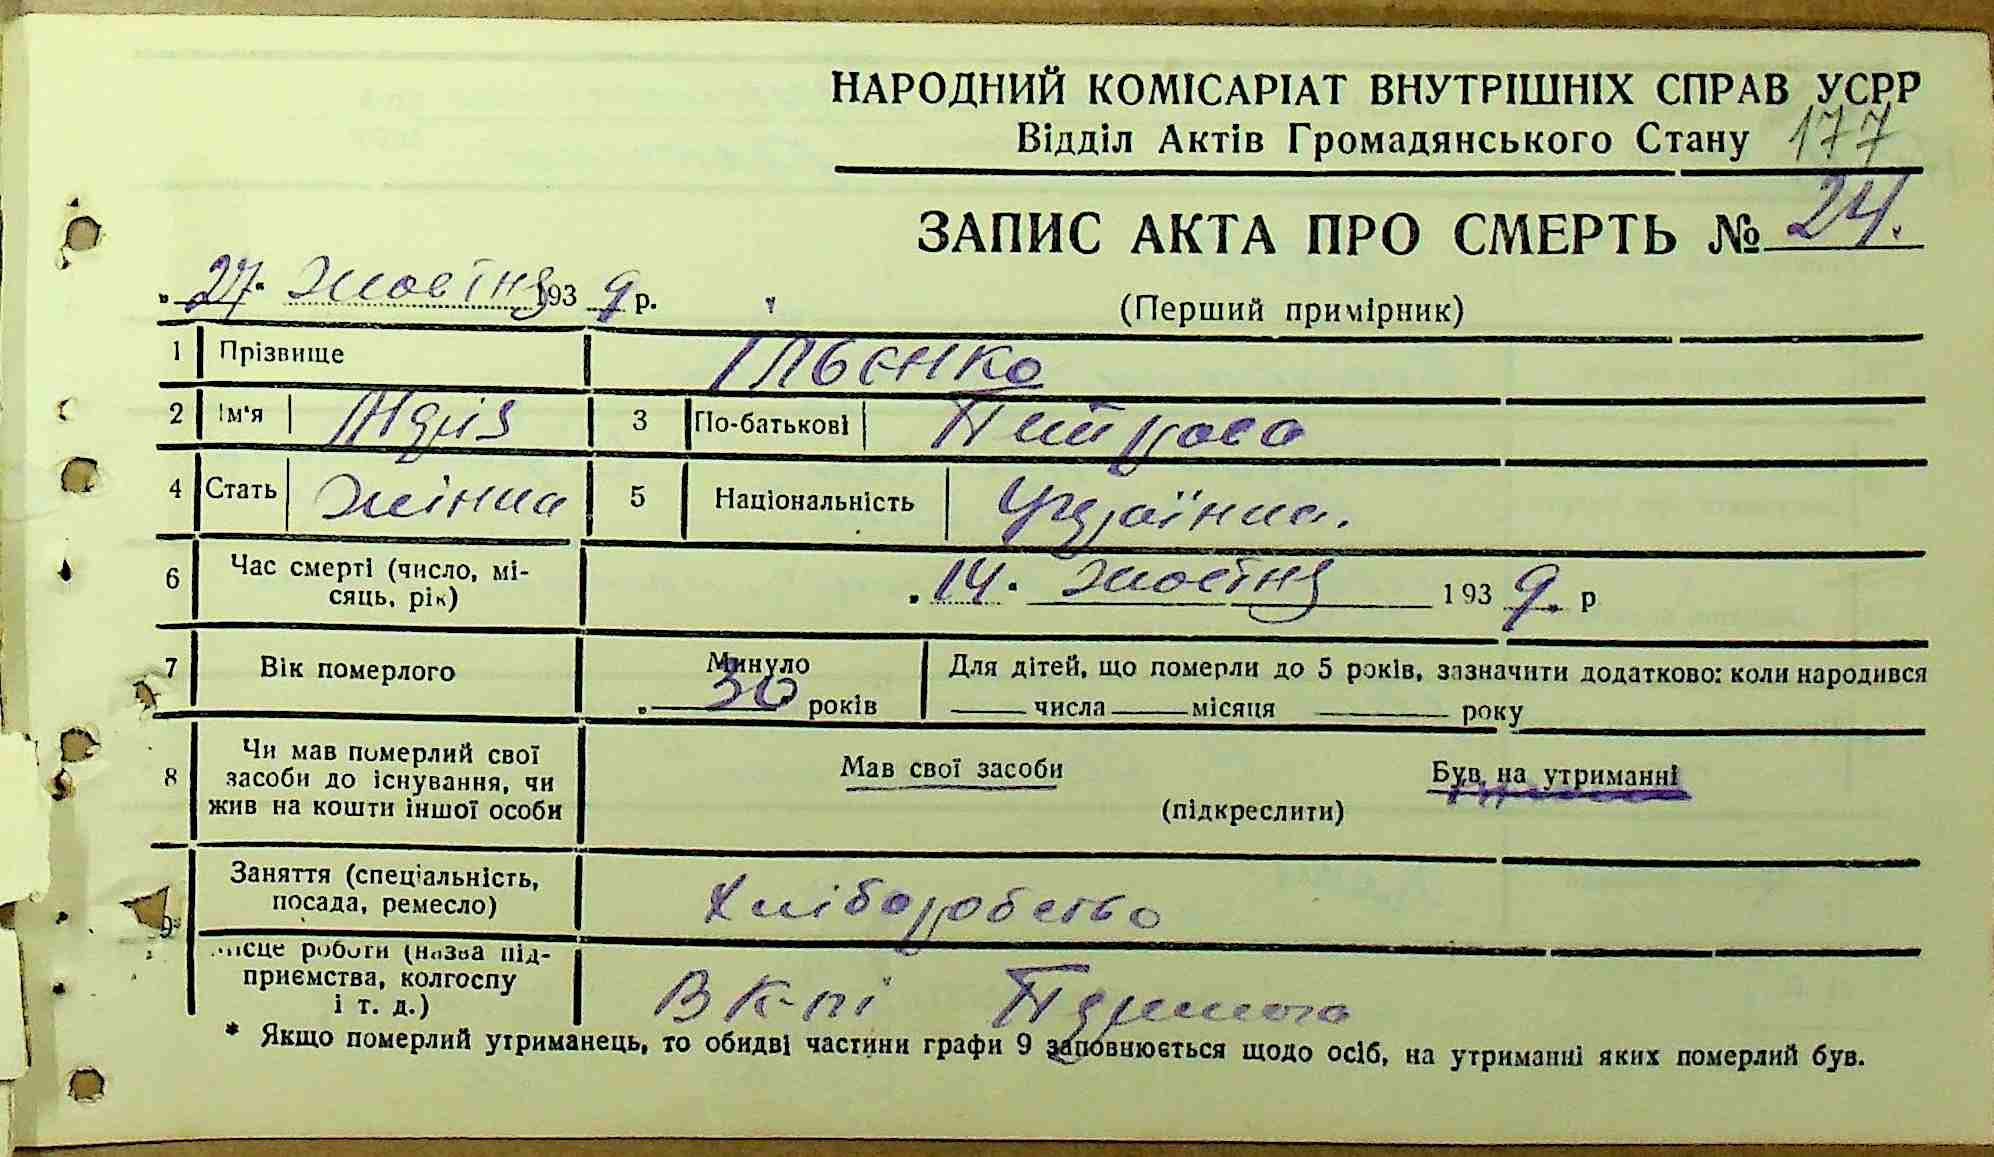 НАРОДНИЙ КОМІСАРІАТ ВНУТРІШНІХ СПРАВ УСРР
Відділ Актів Громадянського Стану 177
ЗАПИС АКТА ПРО СМЕРТЬ № 24.
„27“ жовтня 1939 р.
(Перший примірник)
1 Прізвище Ільєнко
2 Ім'я 3 По-батькові
4 Стать жінка 5 Національність Українка.
6 Час смерті (число, мі-
сяць, рік) „14“ жовтня 1939. р
7 Вік померлого Минуло 30 років Для дітей, що померли до 5 років, зазначити додатково: коли народився
числа місяця року
8 Чи мав померлий свої
засоби до існування, чи
жив на кошти іншої особи
Мав свої засоби Був на утриманні
(підкреслити)
9 Заняття (спеціальність,
посада, ремесло) Хліборобство
Місце роботи (назва під-
приємства, колгоспу
і т. д.) В к-пі
* Якщо померлий утриманець, то обидві частини графи 9 заповнюється щодо осіб, на утриманні яких померлий був.